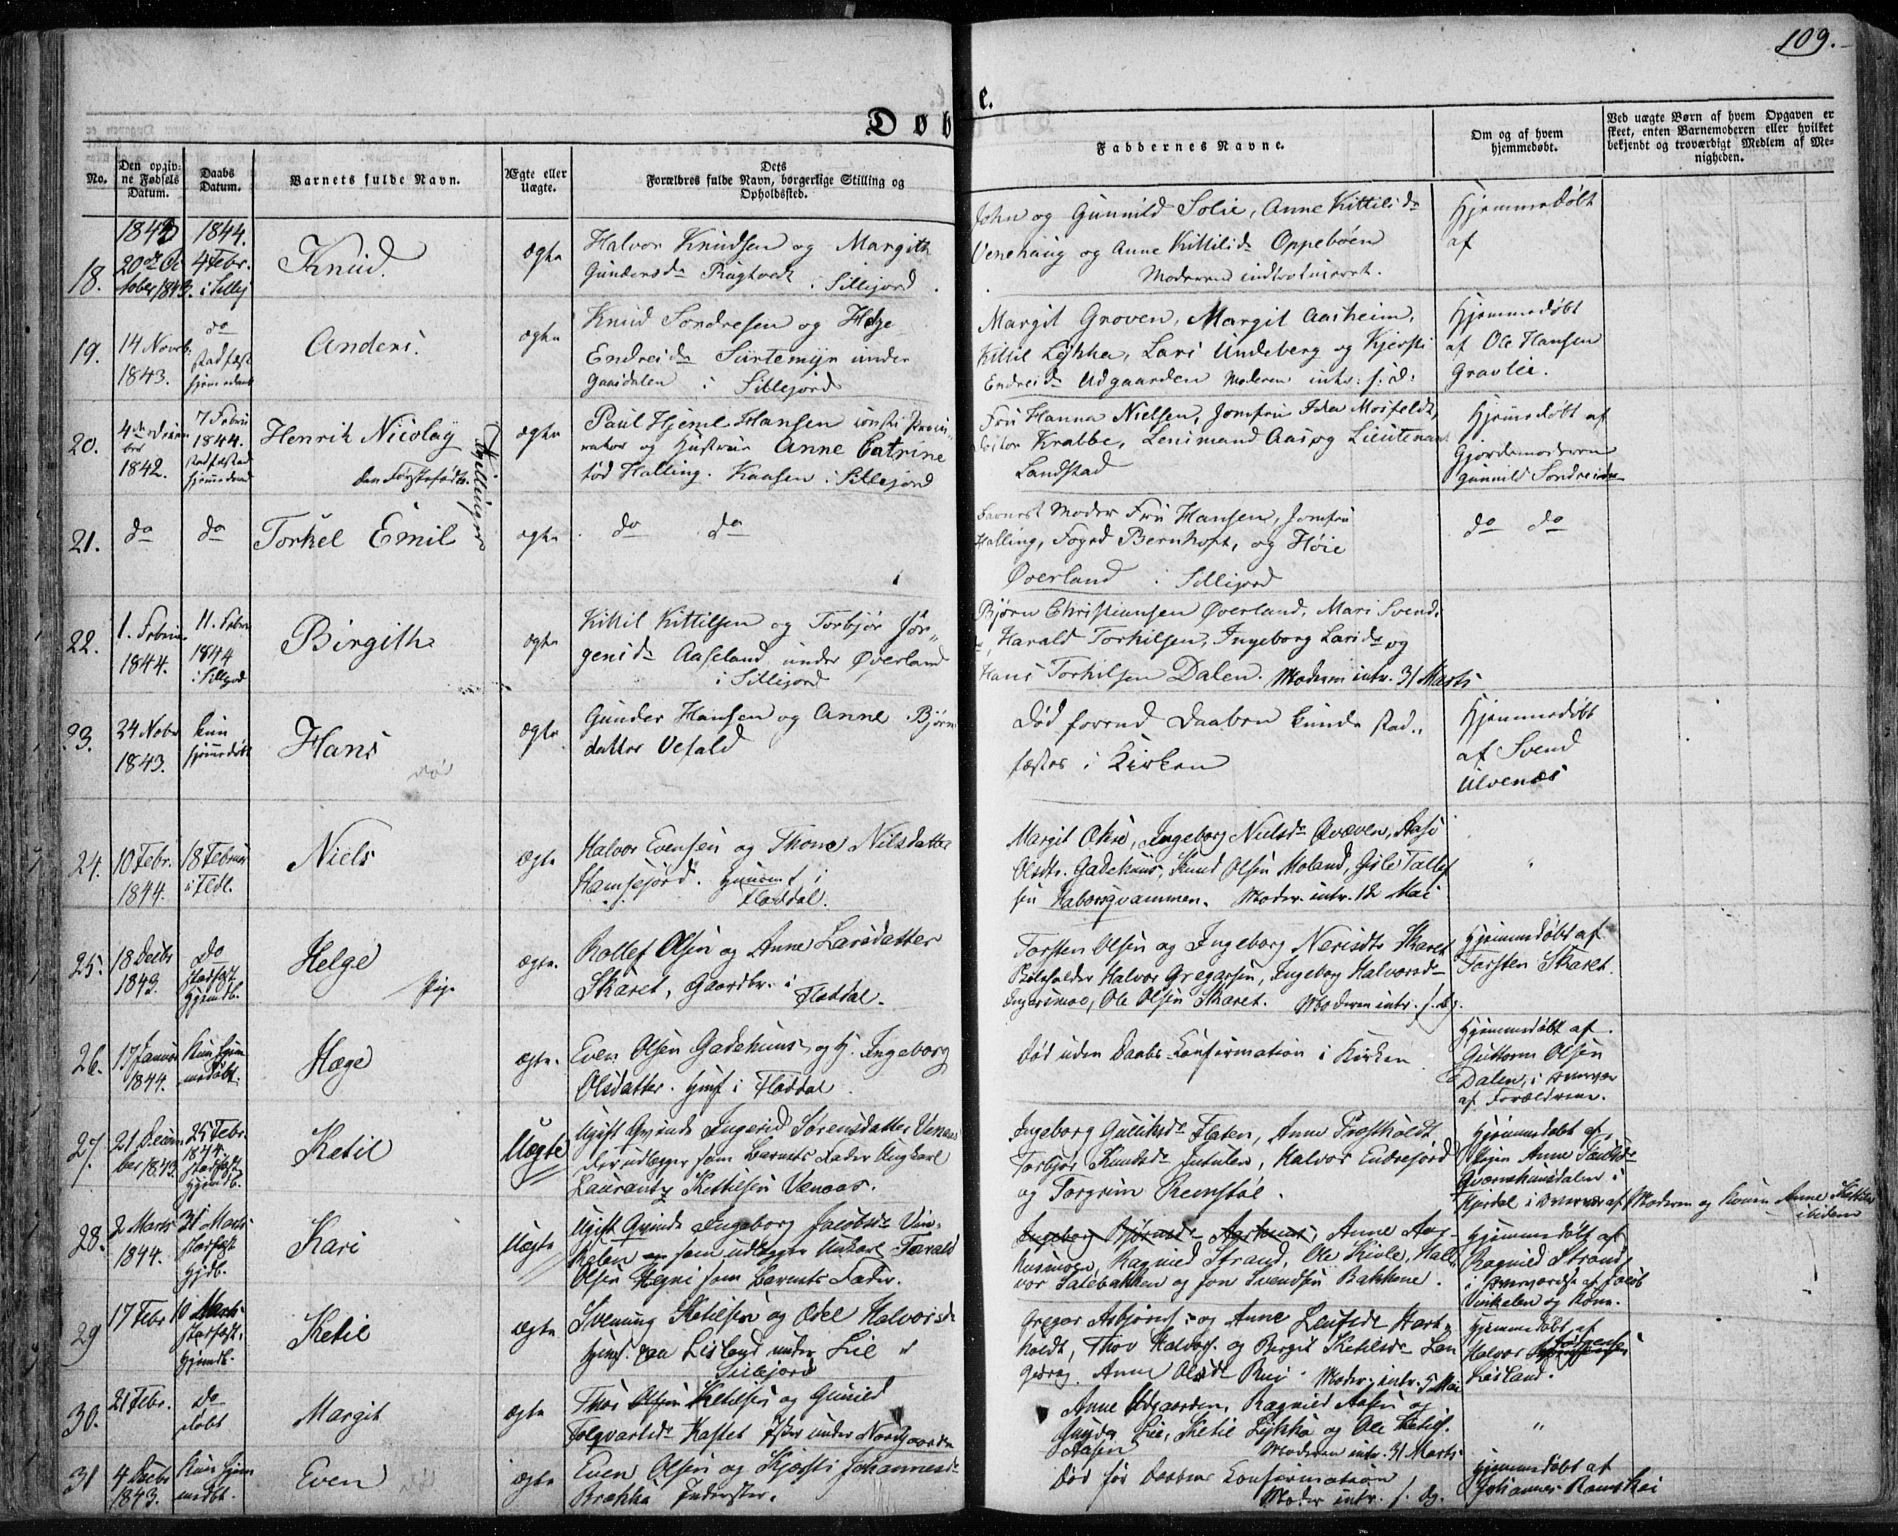 109.
Døbte.
No.
Den opgivne Fødsels Datum.
Daabs Datum.
Barnets fulde Navn.
Ægte eller Uægte.
Dets Forældres fulde Navn, borgerlige Stilling og Opholdssted.
Faddernes Navne.
Om og af hvem hjemmedøbt.
Ved uægte Børn af hvem Opgaven er skeet, enten Barnemoderen eller hvilket bekjendt og troværdigt Medlem af Menigheden.
18.
1843
20de October 1843.
1844.
4 Febr. i Sillej
Knud.
ægte
Halvor Knudsen og Margith
Gundersdr
i Sillejord
John og Gunnild Solie, Anne Kittilsdr
Venehaug og Anne Kittilsdr Oppebøen
Moderen introduceret.
Hjemmedøbt
af
19.
14 Novb.
1843.
do
stadfæst
hjemmedøbt
Anders.
ægte
Knud Sondresen og Helge
Endreidr Surtemyr under
Gaasdalen i Sillejord
Margit Groven, Margit Aasheim,
Kittil Lykka, Lars Undeberg og Kjersti
Endreidr Udgaarden Moderen intr. s. d.
Hjemmedøbt
af Ole Hansen
Gravlie.
20.
4de
1842.
7 Febru
1844.
stadfæstet
hjemmedøbt
Henrik Nicolay
den Førstefødte.
Tvillinger
ægte
Paul Hjeml Hansen const. Procurator og Hustrue Anne Catrine
fød Halling. Kaasen i Sillejord
Fru Hanna Nielsen, Jomfru Ida Mosfeldt,
Krabbe, Lensmand Aas og Lieutenant
Landstad
Hjemmedøbt af
Gjordemoderen
Gunnild Sondreidr
21.
do
do
Torkel Emil
ægte
do do
Barnets Moder Fru Hansen, Jomfru
Halling, Foged Bernhoft, og Høie
Øverland i Sillejord
do do
22.
1. Februar
1844.
11. Febru
1844
i Sillejord
Birgith
ægte
Kittil Kittilsen og Torbjør Jør-
gensdr Aaseland under Øverland
i Sillejord
Bjørn Christiansen Øverland, Mari Svends-
dr, Harald Torkilsen, Ingeborg Larsdr og
Hans Torkilsen Dalen. Moderen intr. 31 Marts
23.
24 Nobr
1843.
kun
hjemmedøbt
Hans
død
ægte.
Gunder Hansen og Anne Bjørns
datter Vefald
Død forend Daaben kunde stad-
fæstes i Kirken
Hjemmedøbt
af Svend
Ulvenæs
24.
10 Febr.
1844.
18 Februar
i Fldl.
Niels
ægte
Halvor Evensen og Thone Nilsdatter
Hamsejord. Huusm. i
Flatdal.
Margit Okse, Ingeborg Nielsdr Qvæven, Aase
Olsdtr. Gadekuus, Knud Olsen Moland, Gisle Tallef
sen Haborsqvammen. Moder. intr. 12 Mai
25.
18 Decbr
1843.
Do
stadfæst
Hjemdb.
Helge
Pige
ægte.
Rollef Olsen og Anne Larsdatter
Skaret, Gaardbr. i
Flatdal.
Torsten Olsen og Ingeborg Nerisdtr Skaret
Halvor Gregarsen, Ingeborg Halvorsdr
Ingersmoe, Ole Olsen Skaret. Moderen intr. s. Dg.
Hjemmedøbt af
Torsten Skaret.
26.
17 Januar
1844.
Kun hjem
medøbt.
Hæge
ægte.
Even Olsen Gadekuus og H. Ingeborg
Olsdatter. Husf i Flatdal.
Død uden Daabs-Confirmation i Kirken
Hjemmedøbt af
Guttorm Olsen
Dalen, i Nærvær
af Forældrene.
27.
21 Decem
ber 1843.
25 Febr.
1844.
stadfæst
Hjemdb.
Ketil
Uægte
Ugift Qvinde Ingerid Sørensdatter Venaas
der udlægger som Barnets Fader Ungkarl
Laurantz Kittilsen Venaas.
Ingeborg Gulliksdr Flaten, Anne Prestholdt
Torbjør Knudsdr Intulen, Halvor Endrejord
og Torgrim Remstøl.
Hjemmedøbt af
Pigen Anne
i
Hjerdal i Nærvær af Moderen og Konen Anne
ibidem
28.
2 Marts
1844.
31 Marts
stadfæst
Hjdb.
Kari
Uægte
Ugift Qvinde Ingeborg Jacobsdr Vin-
kelen som udlægger Unkarl Tarald
Olsen Hegni som Barnets Fader.
Ingeborg Anne Aas-
Ragnid Strand, Ole Kivle, Hal-
vor Salebakken og Jon Svendsen Bakkene.
Hjemmedøbt af
Ragnid Strand
i Nærværelse af Jacob
Vinkelen og Kone.
29
17 Febr
10 Marts
stadfæst.
Hjemdb.
Ketil
ægte
Svenung Ketilsen og Osel Halvorsdr
Husf. paa Lisland under Lie i
Sillejord
Gregar Asbjørns. og Anne Leifsdr Hart-
holdt, Thov Halvors. og Bergit Ketilsdr
Anne Olsdr Moder intr. 5 Mai
Hjemmedøbt af
Halvor
Lisland.
30.
21 Febr.
Do
døbt
Margit
ægte
Thor Ketilsen og Gunild
Folqvarsdr Kastet Ister under Nordgaarden
Anne Udgaarden, Ragnild Aasen og
Lie, Ketil Lykka og Ole Ketils.
Aasen
Moderen intr. 31 Marts.
31
4 Decbr
1843.
Kun hjem
medbt.
Even
ægte
Even Olsen og Kjersti Johannesdr
Brækka Inderster.
Død før Daabens Confirmation
Moder intr. s. Dg.
Hjemmedøbt af
Johannes